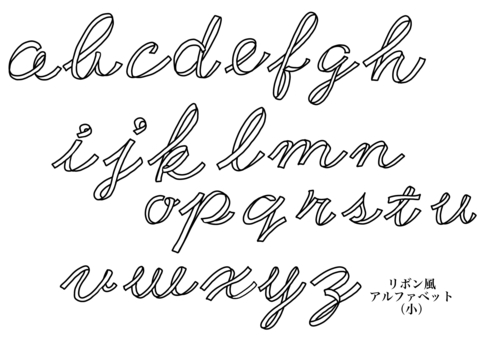 abcdefgh
ijklmn
opqrstu
vwxyz
リボン風
アルファベット
(小)